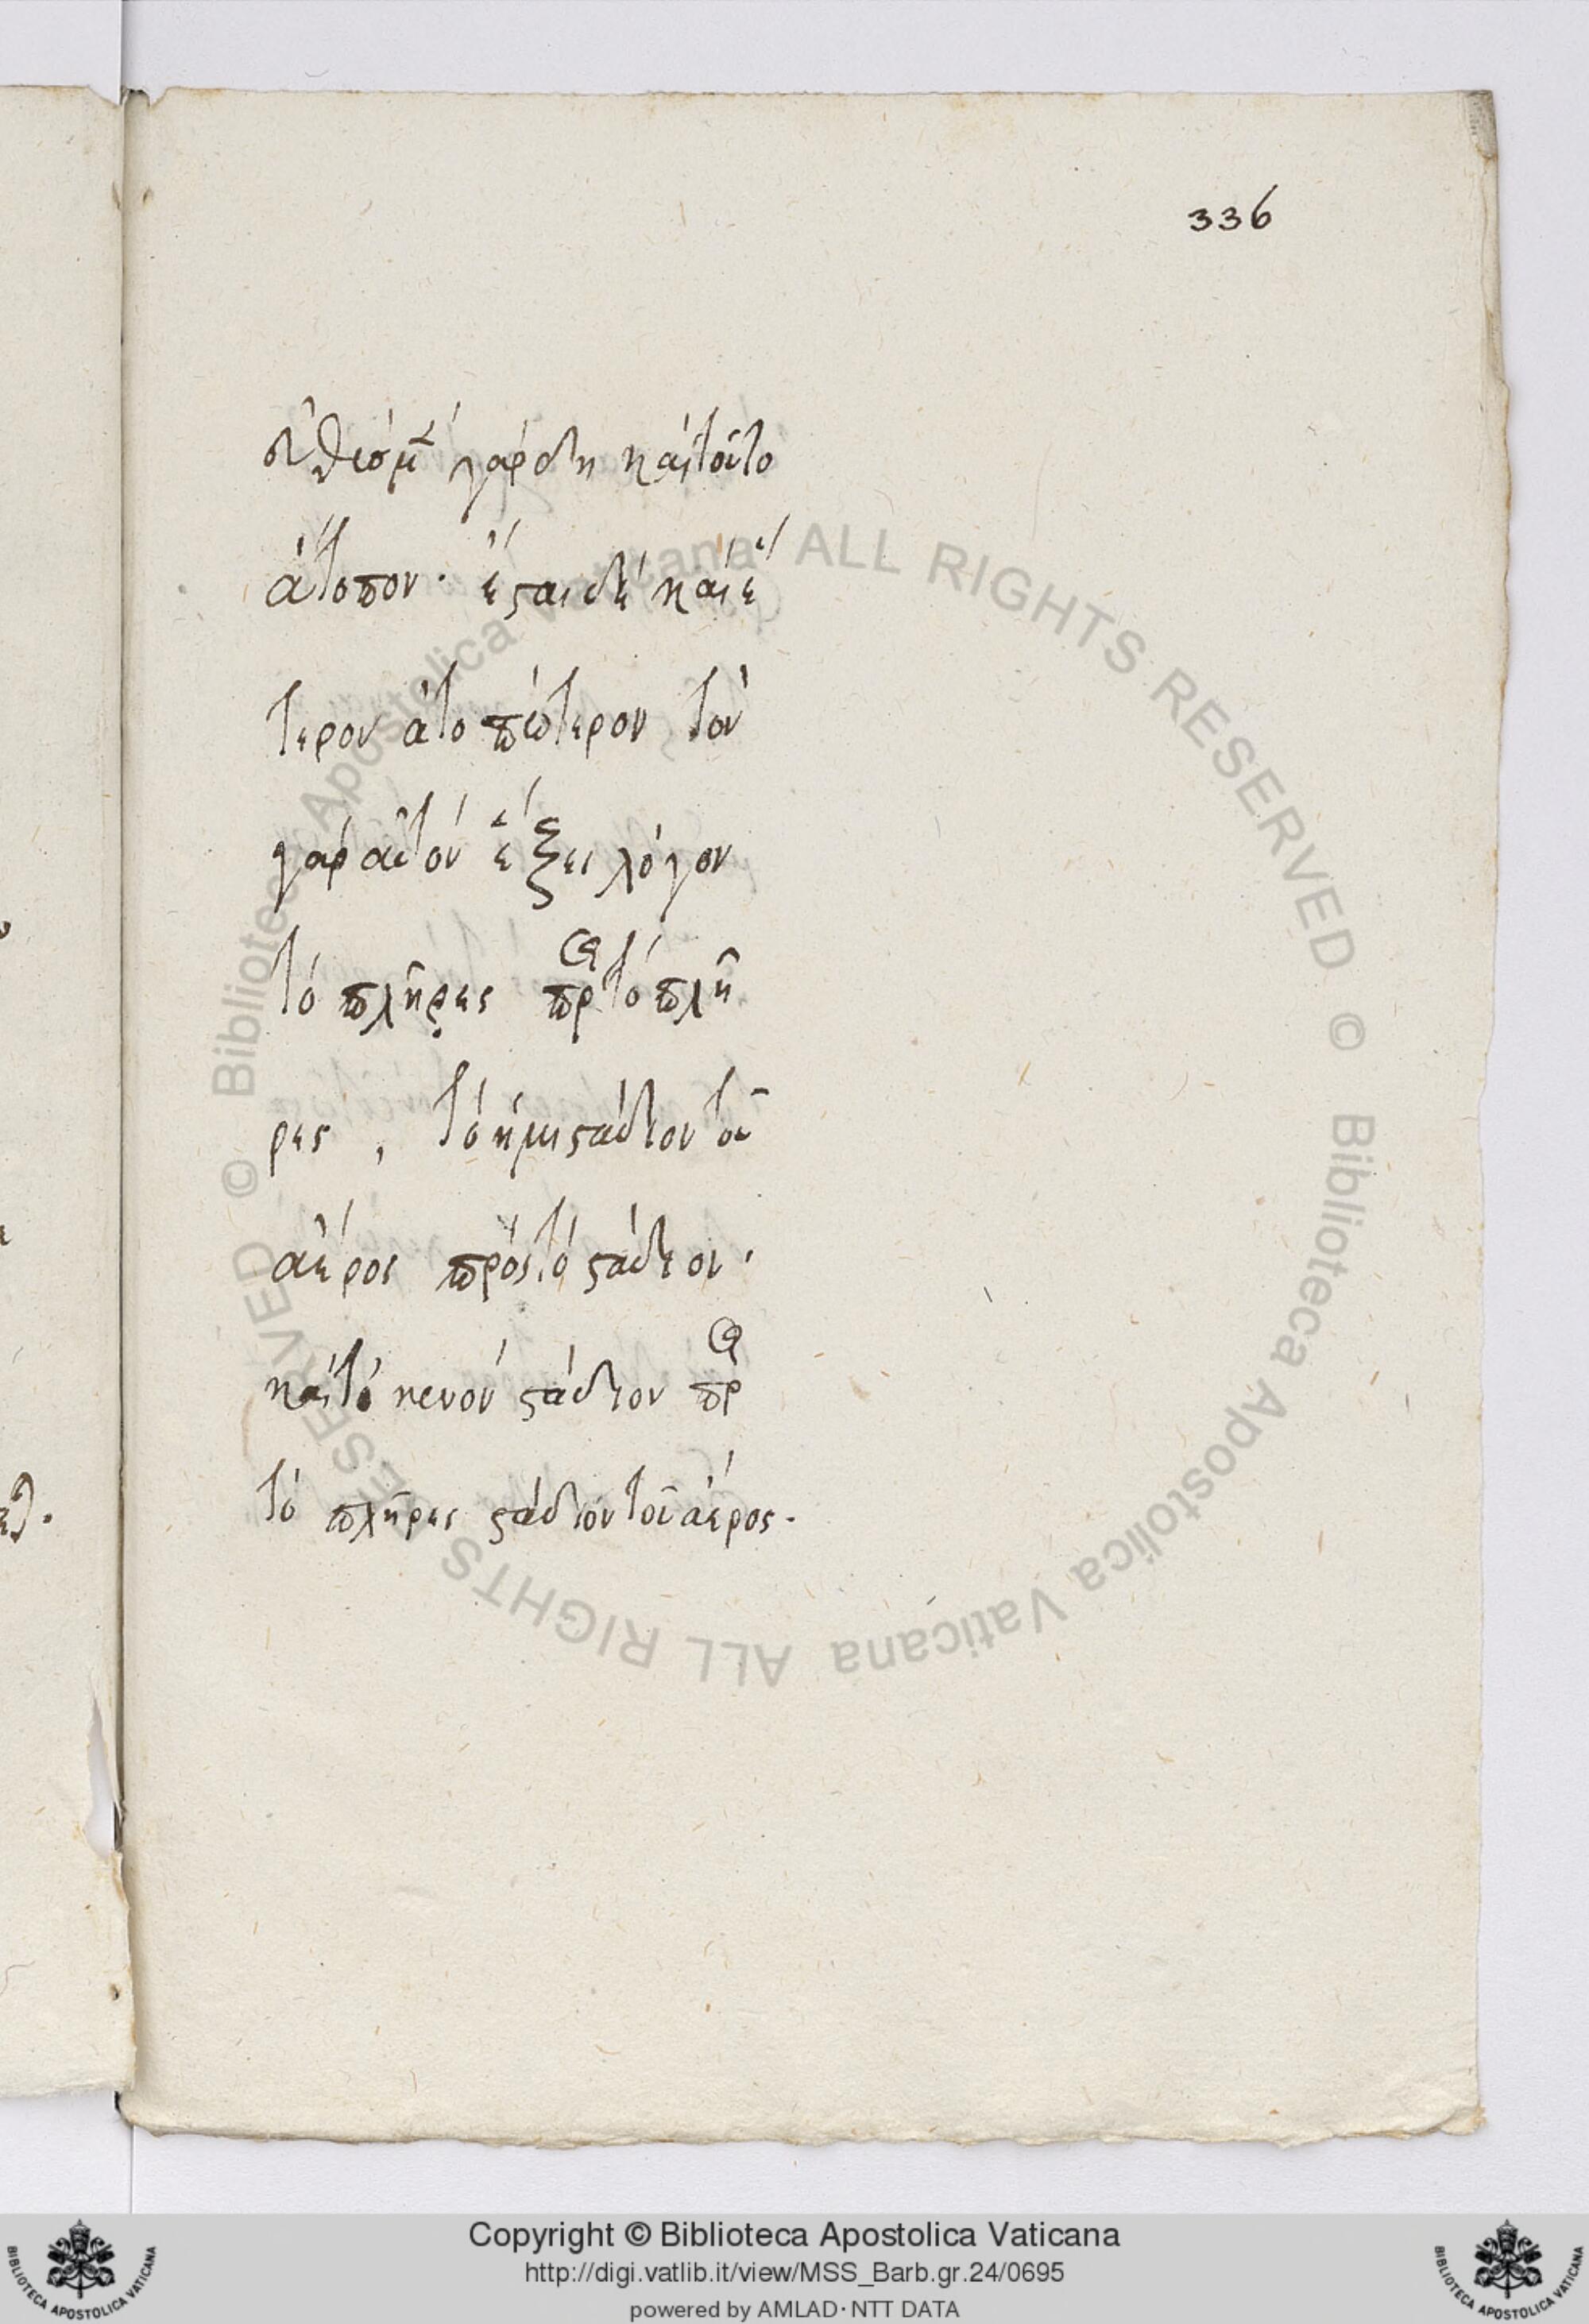 336
γὰρ δὴ καὶ τοῦτο
ἄτοπον. ἔσται δὲ καὶ ἕ
τερον ἀτοπώτερον τὸν
γὰρ αὐτὸν ἕξει λόγον
τὸ πλῆρες πρ τὸ πλῆ
ρες, τὸ ἡμιστάδιον τοῦ
ἀέρος πρὸς τὸ στάδιον.
καὶ τὸ κενὸν στάδιον πρ
τὸ πλῆρες στάδιον τοῦ ἀέρος.
Copyright © Biblioteca Apostolica Vaticana
http://digi.vatlib.it/view/MSS_Barb.gr.24/0695
powered by AMLAD·NTT DATA
BIBLIOTECA APOSTOLICA VATICANA
BIBLIOTECA APOSTOLICA VATICANA
© Biblioteca Apostolica Vaticana ALL RIGHTS RESERVED © Biblioteca Apostolica Vaticana ALL RIGHTS RESERVED